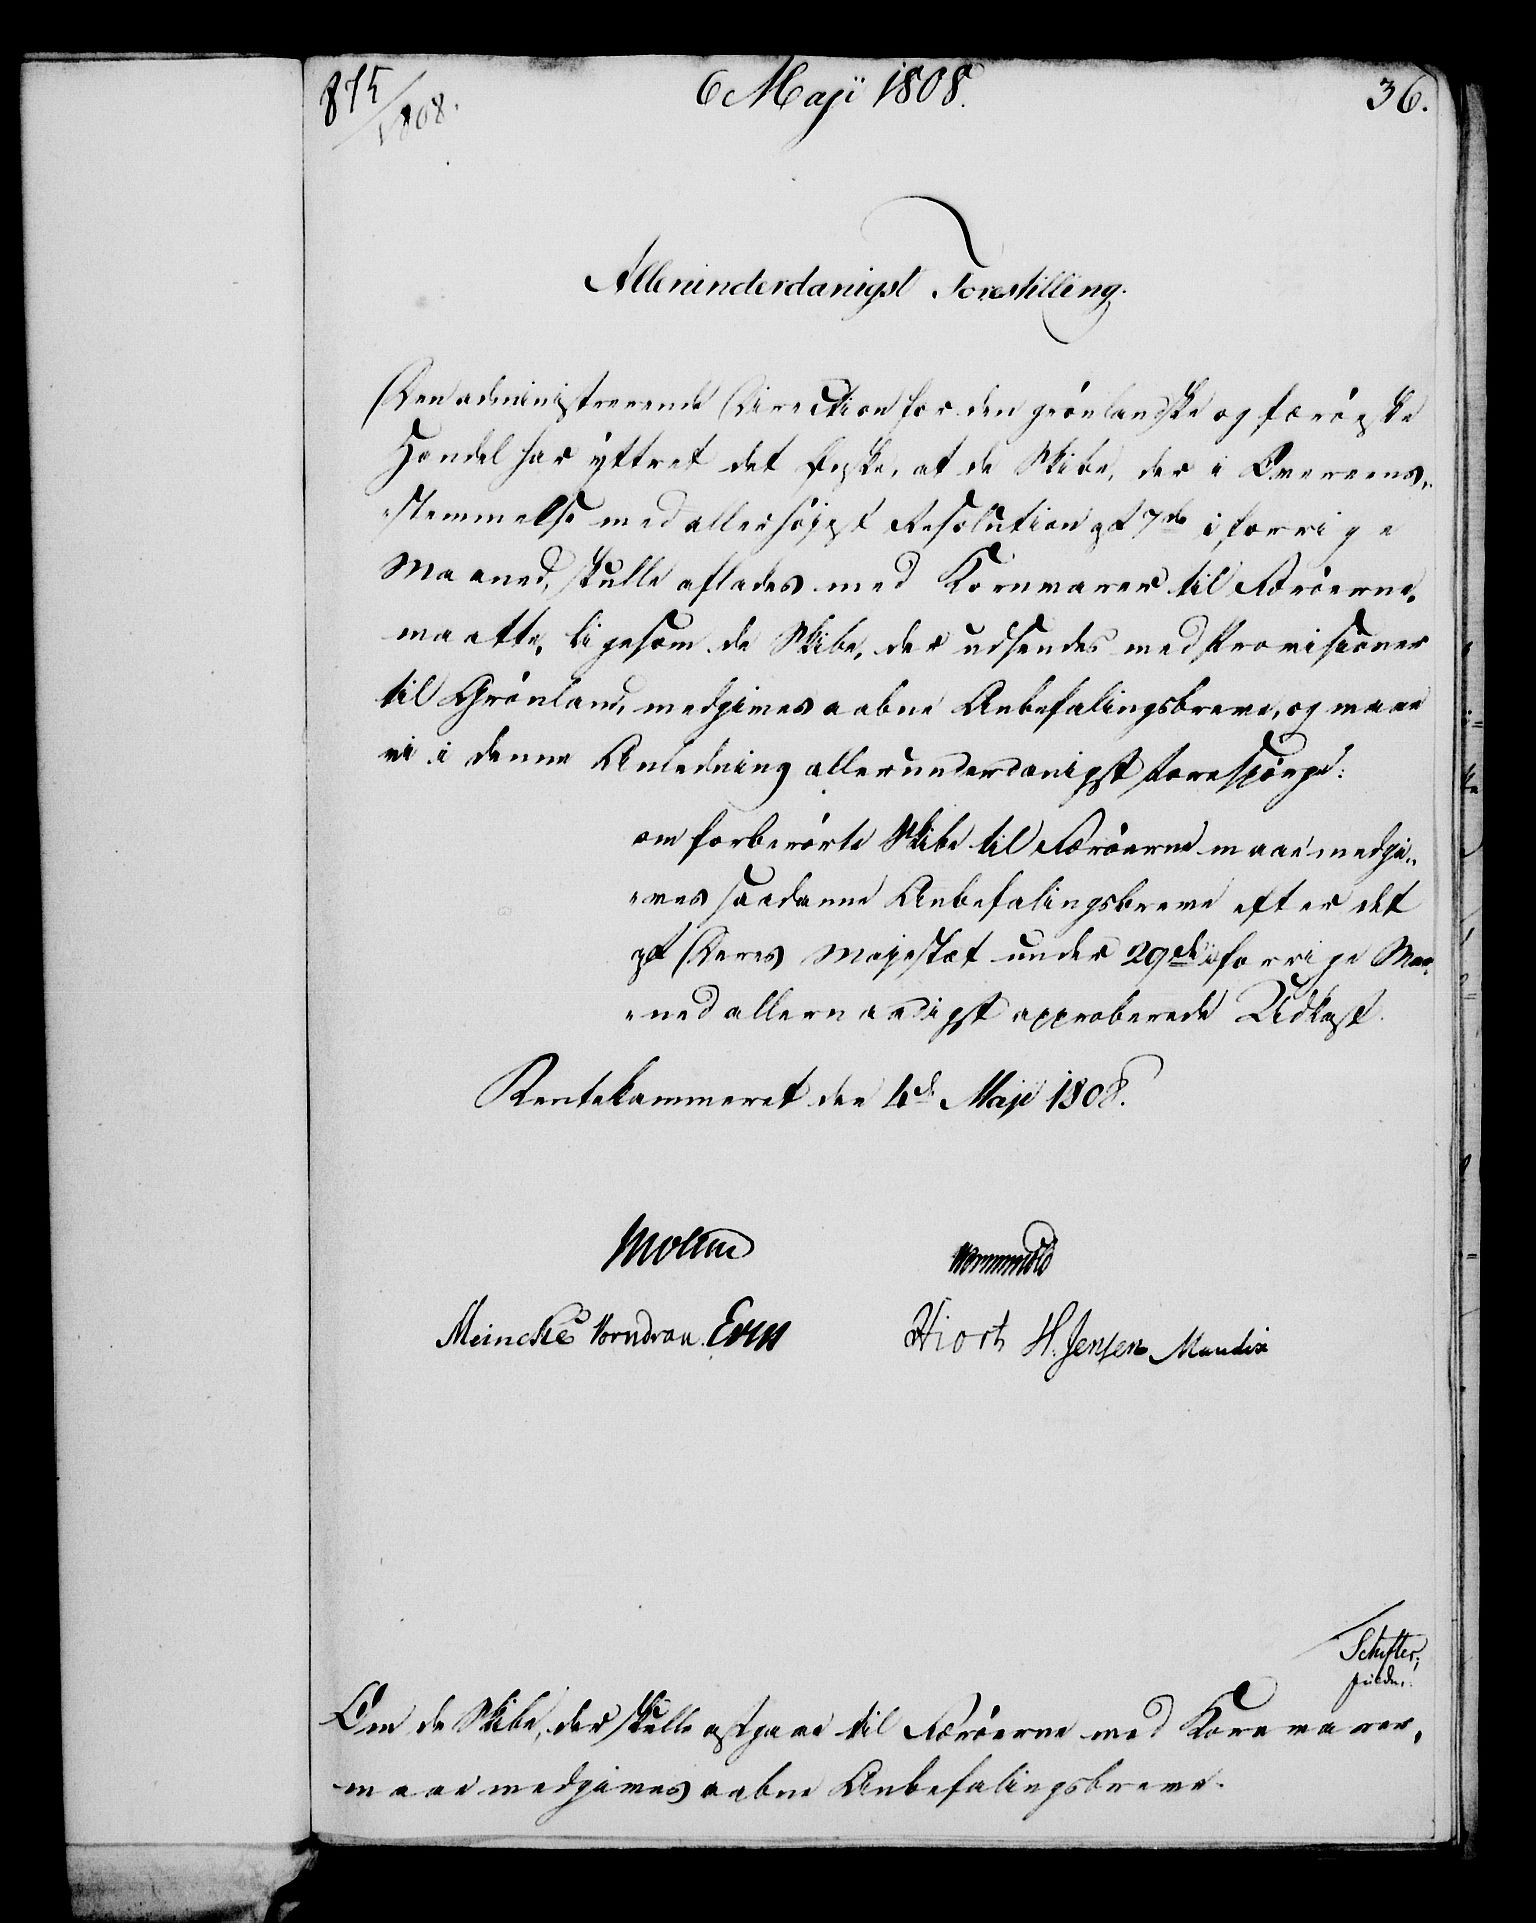 875
1808.
6 Maji 1808.
36.
Allerunderdanigst Forestilling.
Den administrerende Direction for den grönlandske og færöiske
Handel har yttret det Ønske, at de Skibe, der i Overeens„
„stemmelse med allerhöjest Resolution af 7de i forrige
Maaned, skulle aflades med Kornvarer til Færöerne,
maatte, ligesom de Skibe, der udsendes med Provisioner
til Grönland, medgives aabne Anbefalingsbreve, og maae
vi i denne Anledning allerunderdanigst forespörge:
om forberörte Skibe til Færöerne maae medgi„
„ves saadanne Anbefalingsbreve efter det
af Deres Majestæt under 29de i forrige Maa„
„ned allernaadigst approberede Udkast.
Rentekammeret den 4de Maji 1808.
Moltke
Wormskiold
Meincke Vorndran. Even
Hiort H. Jensen Mandix
Schifter,
Om de Skibe, der skulle afgaae til Færöerne med Kornvarer,
maae medgives aabne Anbefalingsbreve.